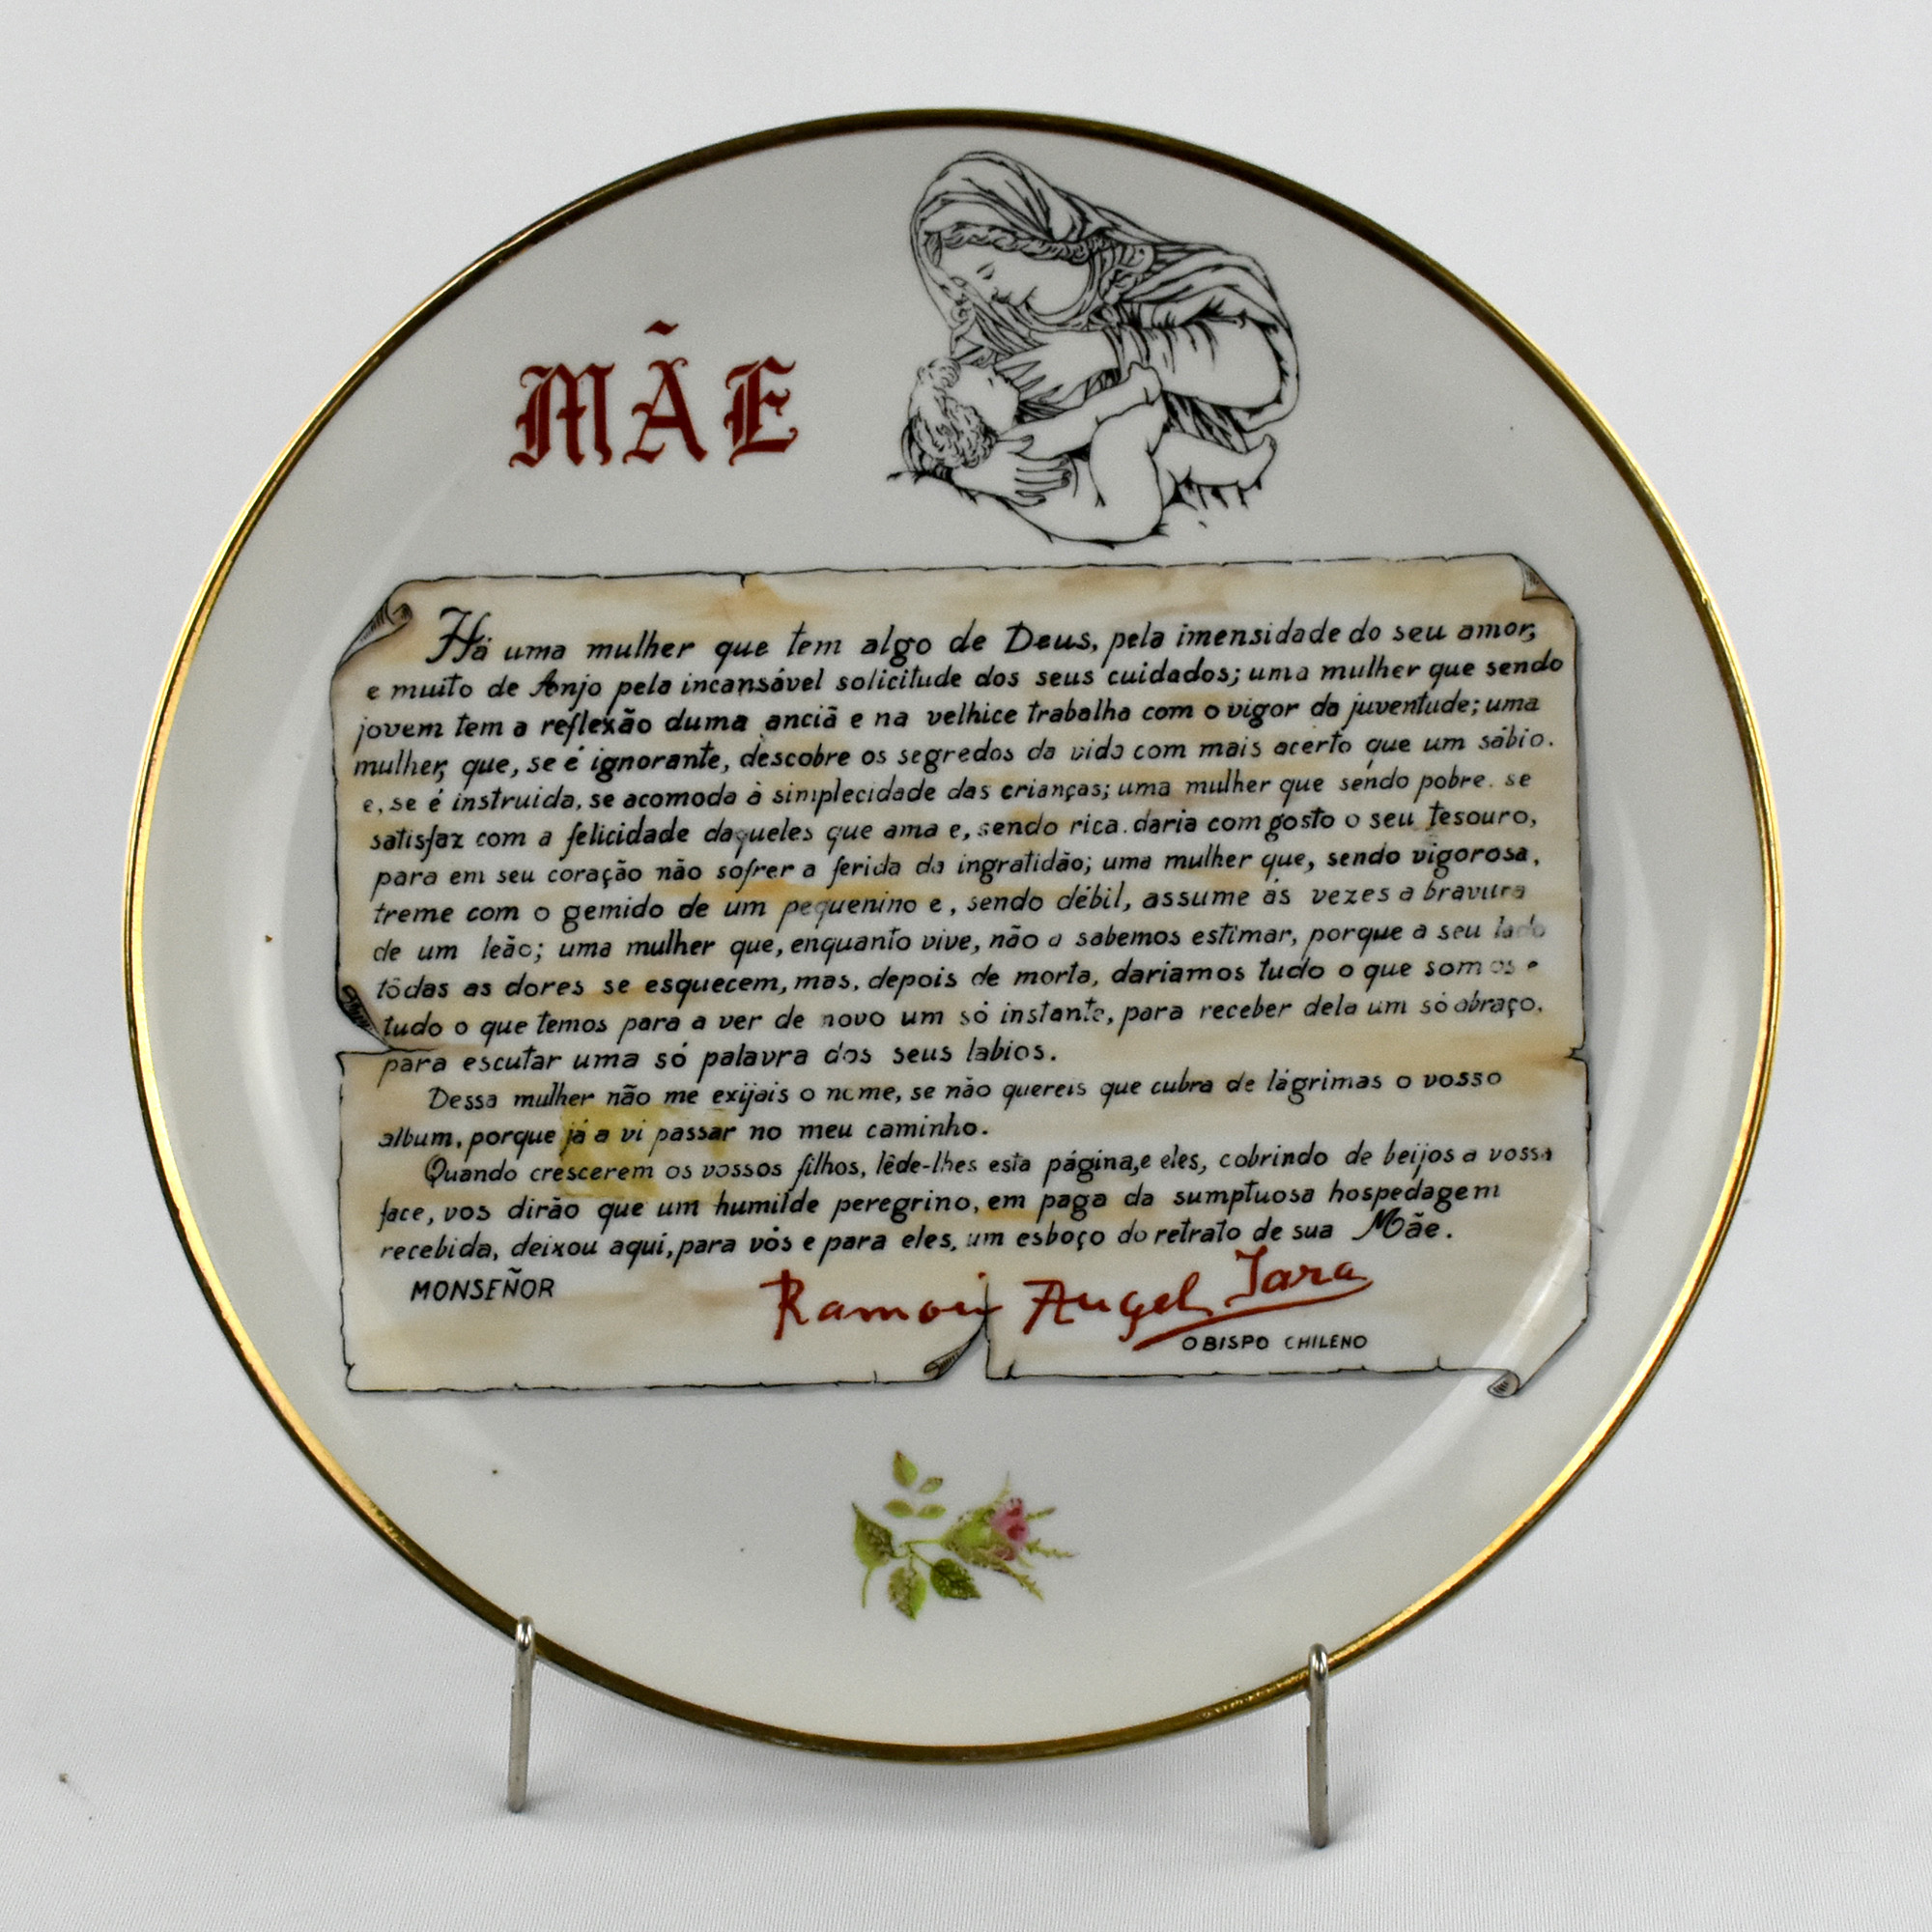 MÃE
Há uma mulher que tem algo de Deus, pela imensidade do seu amor,
e muito de Anjo pela incansável solicitude dos seus cuidados; uma mulher que sendo
jovem tem a reflexão duma anciã e na velhice trabalha com o vigor da juventude; uma
mulher, que, se é ignorante, descobre os segredos da vida com mais acerto que um sábio.
e, se é instruida, se acomoda à simplecidade das crianças; uma mulher que sendo pobre. se
satisfaz com a felicidade daqueles que ama e, sendo rica. daria com gosto o seu tesouro,
para em seu coração não sofrer a ferida da ingratidão; uma mulher que, sendo vigorosa,
treme com o gemido de um pequenino e, sendo débil, assume ás vezes a bravura
de um leão; uma mulher que, enquanto vive, não a sabemos estimar, porque a seu lado
tôdas as dores se esquecem, mas, depois de morta, dariamos tudo o que somos e
tudo o que temos para a ver de novo um só instante, para receber dela um só abraço,
para escutar uma só palavra dos seus labios.
Dessa mulher não me exijais o nome, se não quereis que cubra de lágrimas o vosso
album, porque já a vi passar no meu caminho.
Quando crescerem os vossos filhos, lêde-lhes esta página, e eles, cobrindo de beijos a vossa
face, vos dirão que um humilde peregrino, em paga da sumptuosa hospedagem
recebida, deixou aqui, para vós e para eles, um esboço do retrato de sua Mãe.
MONSEÑOR Ramon Angel Jara
OBISPO CHILENO